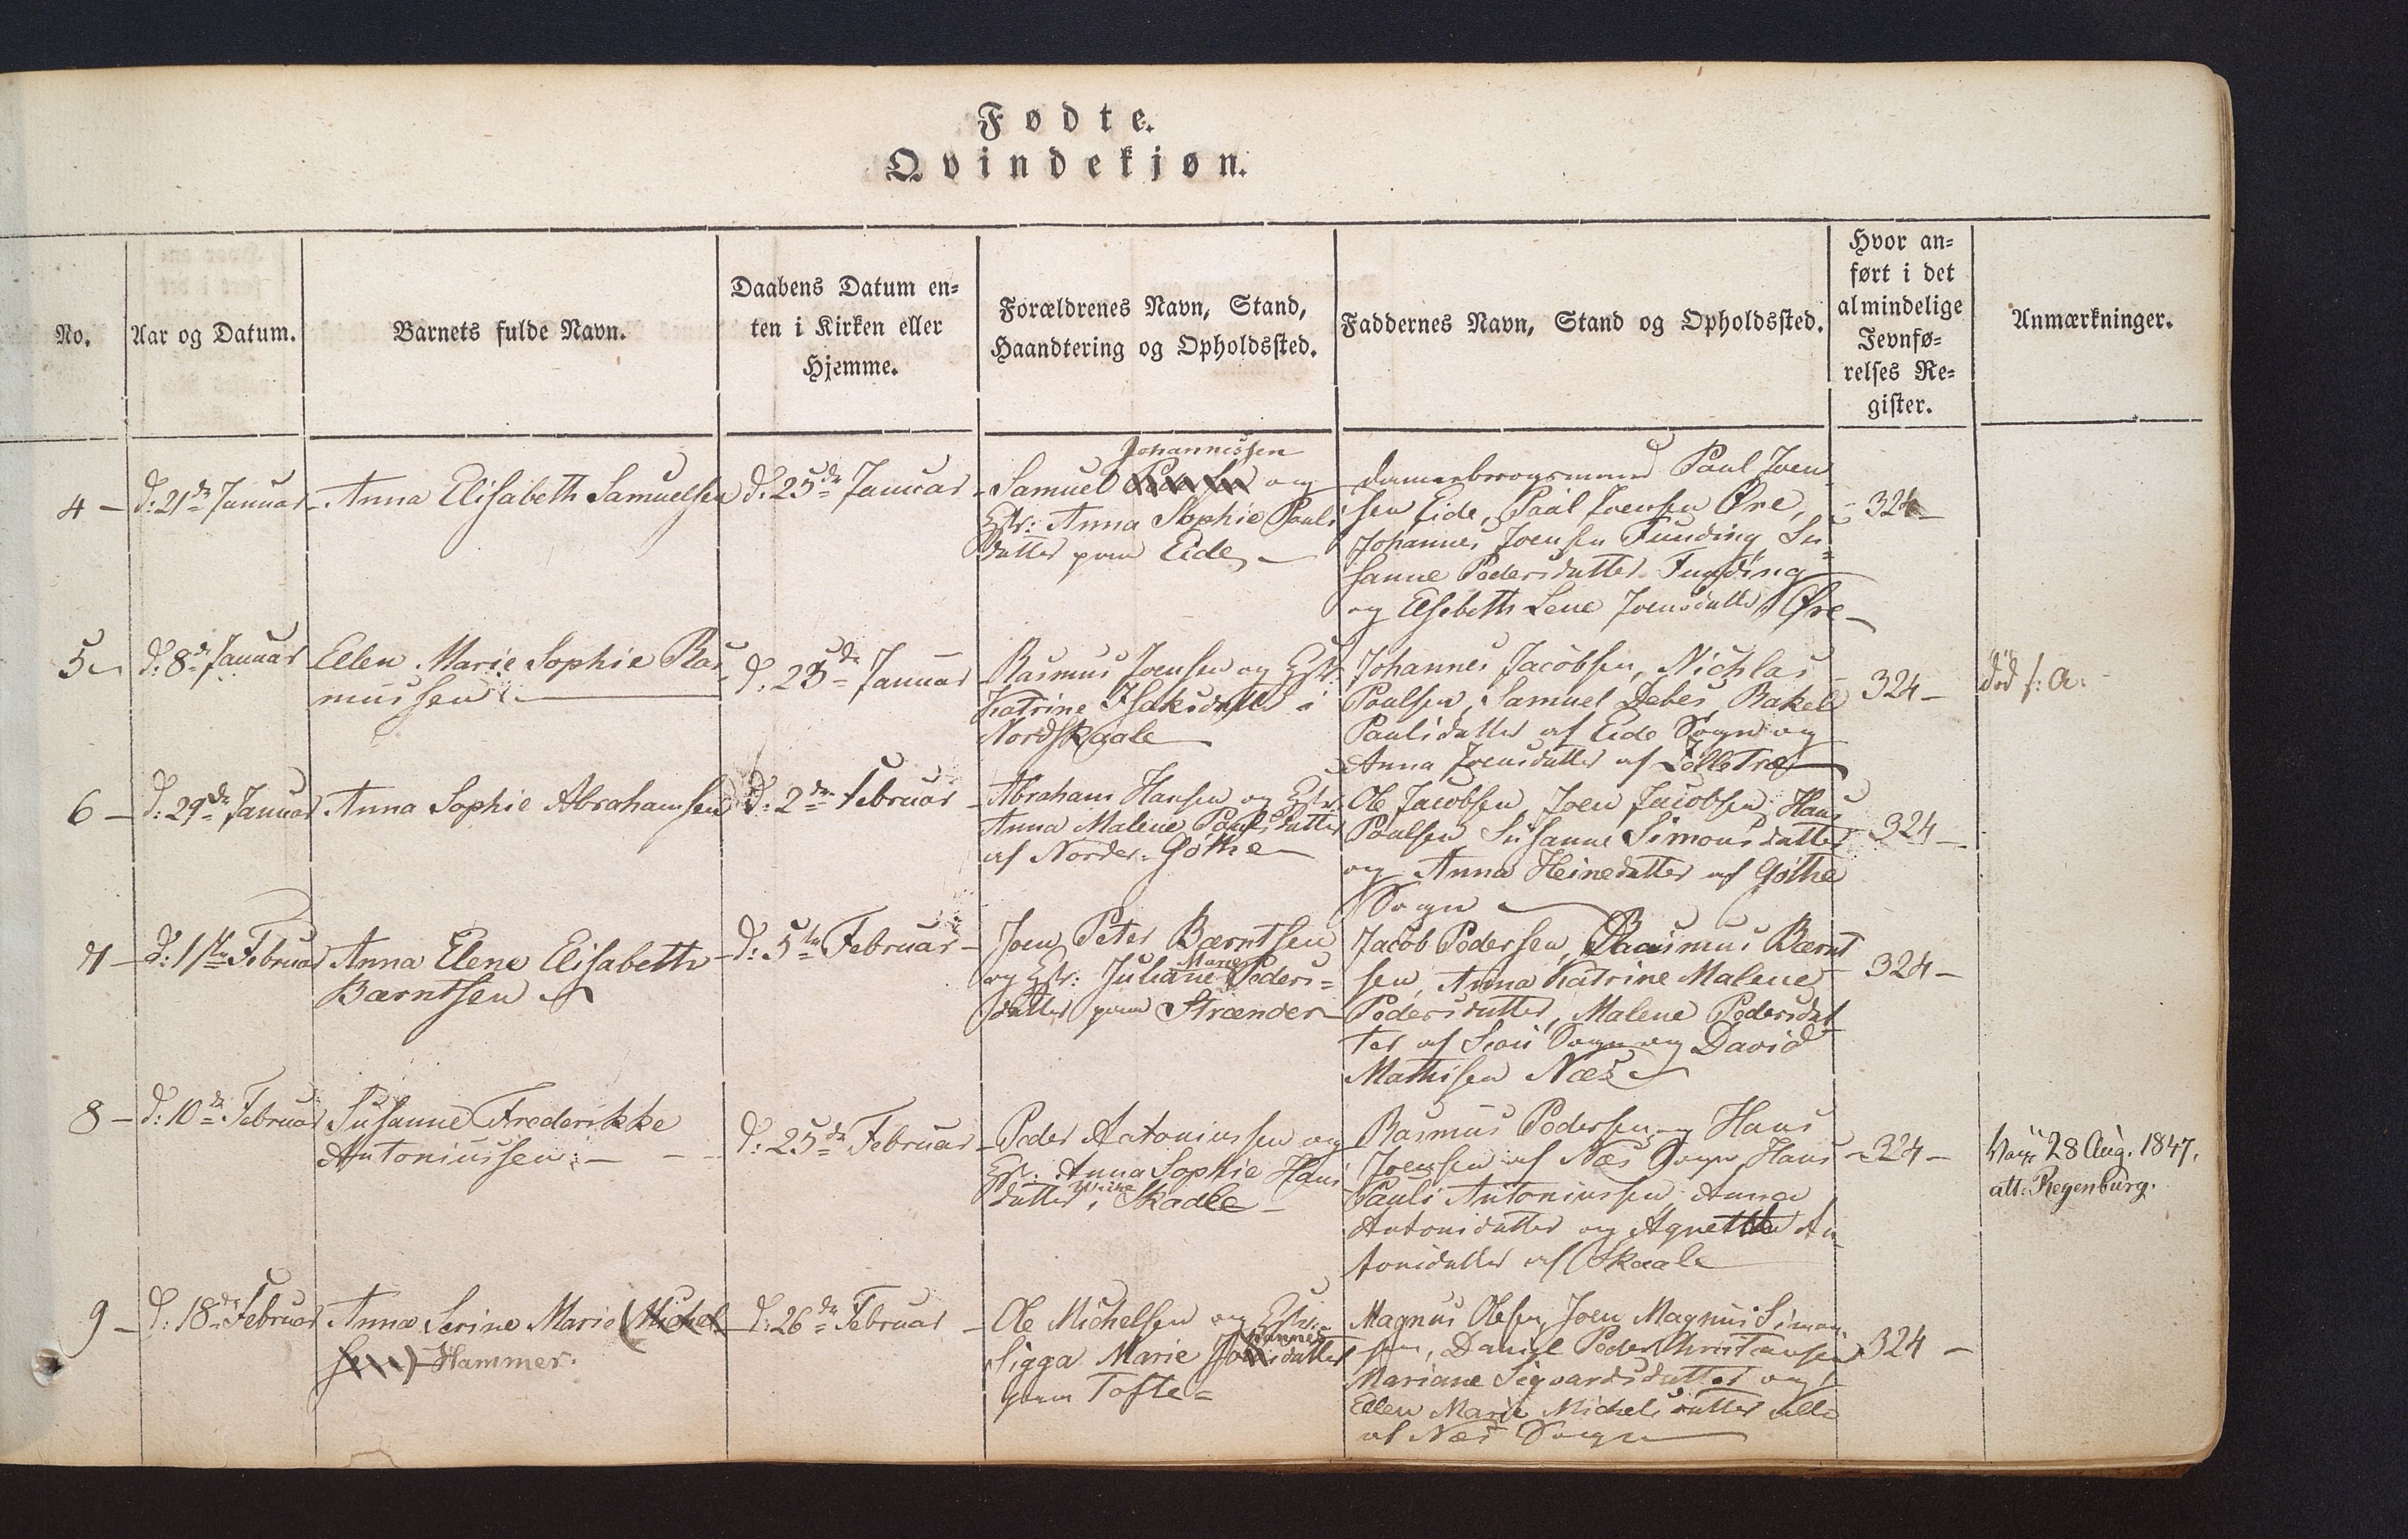 Fødte.
Qvindekjøn.
No.
Aar og Datum.
Barnets fulde Navn.
Daabens Datum en-
ten i Kirken eller
Hjemme.
Forældrenes Navn, Stand,
Haandtering og Opholdssted.
Faddernes Navn, Stand og Opholdssted.
Hvor an-
ført i det
almindelige
Jevnfø-
relses Re-
gister.
Anmærkninger.
4 -
d: 21de Januar
Anna Elisabeth Samuelsen
d: 25de Januar
Johannessen
Samuel og
Hstr: Anna Sophie Pouls
datter paa Eide
Dannebrogsmand Paul Joen
sen Eide, Paul Joensen Øre,
Johannes Joensen Funding Su-
sanne Pedersdatter Funding
og Elsebeth Lene Joensdatter Øre
324
5
d: 8de Januar
Ellen Marie Sophie Ras
mussen
d: 25de Januar
Rasmus Joensen og Hstr:
Katrine Isaksdatter i
Nordskaale
Johannes Jacobsen, Nichlas
Poulsen, Samuel Debes, Rakel
Paulsdatter af Eide Sogn og
Anna Joensdatter af
324
død s: A:
6
d: 29de Januar
Anna Sophie Abrahamsen
d: 2den Februar
Abraham Hansen og Hstr:
Anna Malene Poulsdatter
af Norder-Gøthe
Ole Jacobsen, Joen Jacobsen, Hans
Poulsen Susanne Simonsdatter
og Anna Heinedatter af Gøthe
Sogn
324
7
d: 1ste Februar
Anna Elene Elisabeth
Bærntsen
d: 5te Februar
Joen Peter Bærntsen
Marie
og Hstr: Juliane Peders-
datter paa Strænder
Jacob Pedersen, Rasmus Bærnt
sen, Anna Katrine Malene
Pedersdatter, Malene Pedersdat
ter af Siov Sogn og David
Mathisen Næs
324 -
8 -
d: 10de Februar
Susanne Frederikke
Antoniussen
d: 25de Februar
Peder Antoniussen og
Hstr: Anna Sophie Hans
datter i Skaale
Rasmus Pedersen og Hans
Joensen af Næs Sogn, Hans
Pauli Antoniussen, Anna
Antonisdatter og Agnethe An
tonisdatter af Skaale
324 -
Vacc 28 Aug. 1847.
att: Regenburg.
9 -
d: 18de Februar
Anna Serine Marie (Michel
sen) Hammer.
d: 26de Februar
Ole Michelsen og Hstr:
hannes
Sigga Marie Jo datter
paa Tofte
Magnus Olesen, Joen Magnus Simon
sen, Daniel Peder Christiansen
Mariane Sigvardsdatter og
Ellen Marie Michelsdatter alle
af Næs Sogn
324 -